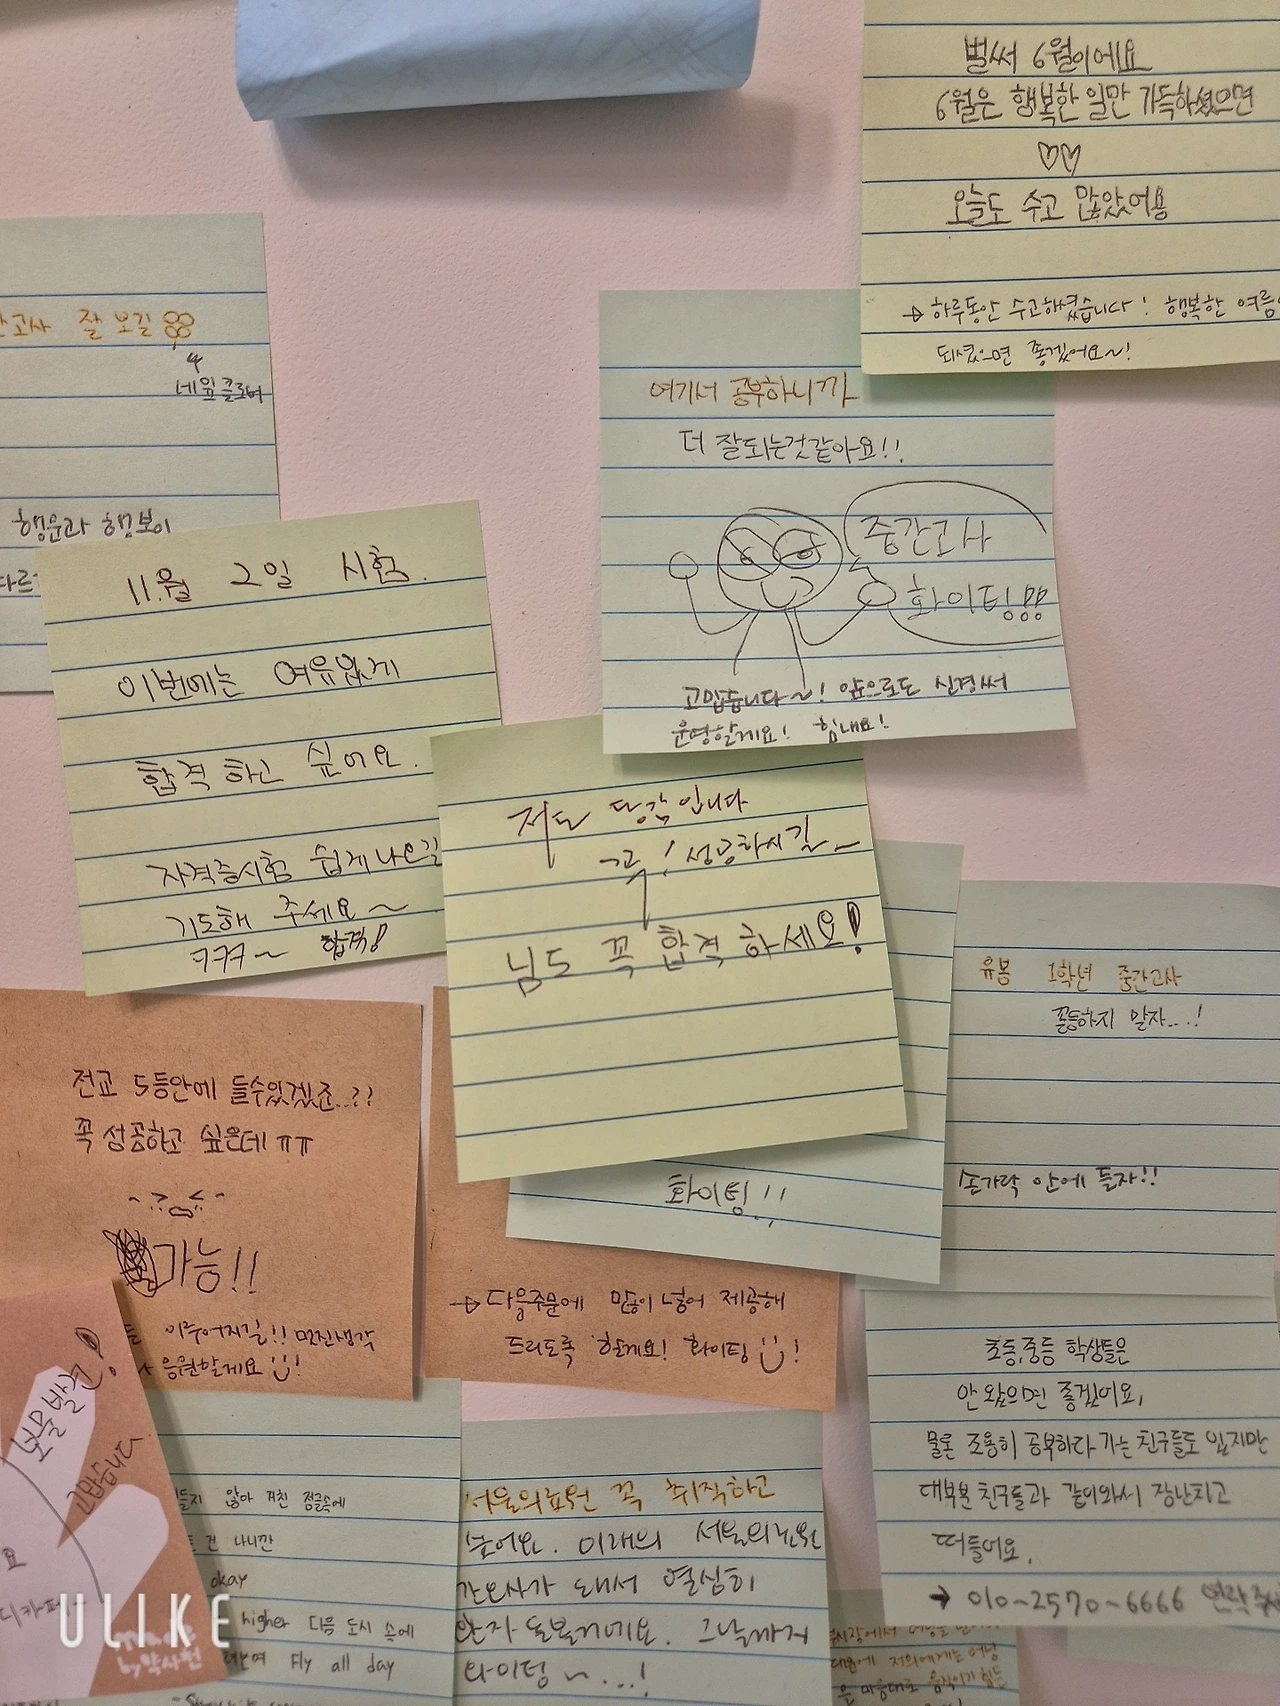 벌써 6월이에요
6월은 행복한 일만 가득하셨으면
오늘도 수고 많았어용
→ 하루동안 수고해셨습니다! 행복한
되셨으면 좋겠어요~!
잘 보길
네잎클로버
행운과 행복이
여기서 공부하니까
더 잘되는것같아요!!
중간고사
화이팅!!
고맙습니다~! 앞으로도 신경써
운영할게요! 힘내요!
11월 2일 시험.
이번에는 여유있게
합격하고 싶어요.
자격증시험 쉽게나오길
기도해 주세요~
ㅋㅋㅋ~ 합격!
저도 동감입니다
꼭! 성공하시길
님도 꼭 합격 하세요!
화이팅!!
유봉 1학년 중간고사
꼴등하지 말자...!
손가락 안에 들자!!
전교 5등안에 들수있겠죠..??
꼭 성공하고 싶은데 ㅠㅠ
가능!!
이루어지길!! 멋진생각
응원할게요 !
→ 다음주문에 많이 넣어 제공해
드리도록 할게요! 화이팅 !
초등,중등 학생들은
안 왔으면 좋겠어요,
물론 조용히 공부하다 가는 친구들도 있지만
대부분 친구들과 같이와서 장난치고
떠들어요.
→ 010-2570-6666 연락주세
보물발견!
고맙습니다
않아 거친 정글속에
건 나니깐
okay
higher 다음 도시 속에
Fly all day
서울의료원 꼭 취직하고
싶어요. 미래의 서울의료원
간호사가 돼서 열심히
환자 돌볼거예요. 그날까지
화이팅~...!
ULIKE